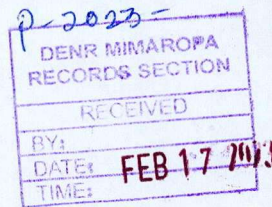 P-2023-
DENR MIMAROPA
RECORDS SECTION
RECEIVED
BY:
DATE: FEB 17 2023
TIME: